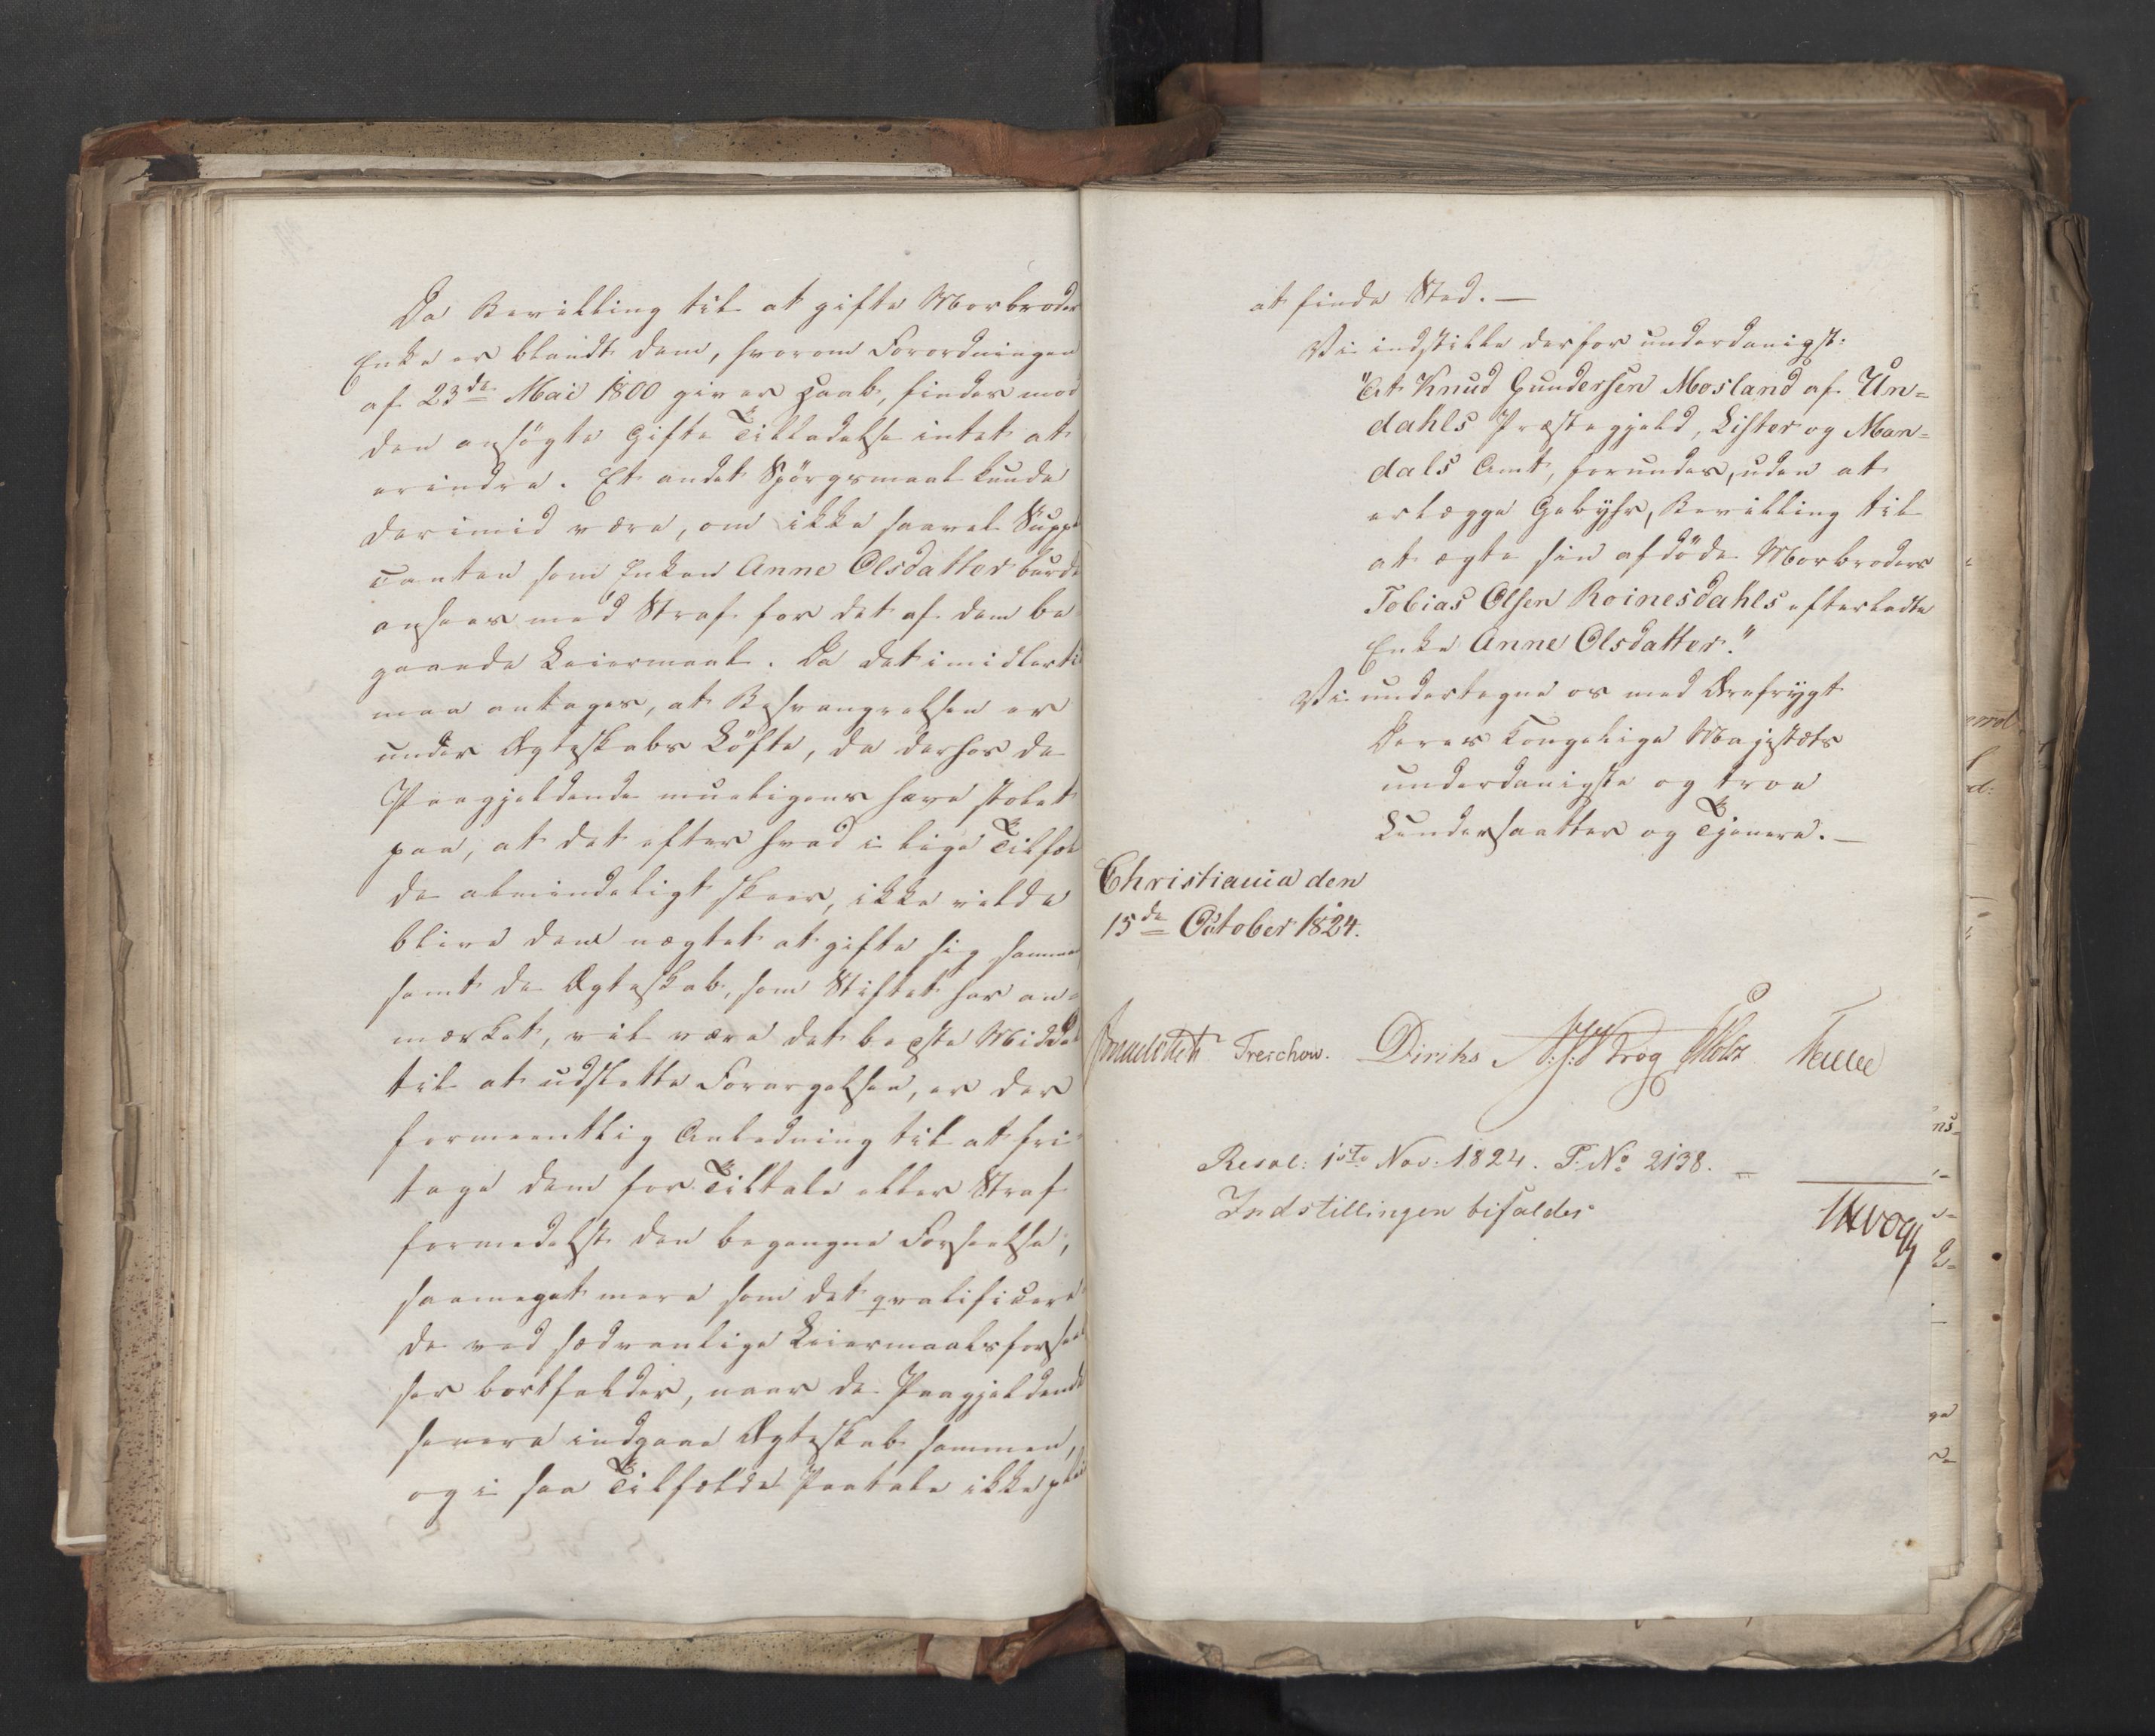 Da Bevilling til at gifte Morbroders
Enke er blandt dem, hvorom Forordningen
af 23de Mai 1800 giver Haab, findes mod
den ansøgte Gifte Tilladelse intet at
erindre. Et andet Spörgsmaal kunde
derimod være, om ikke saavel Suppli
canten som Enken Anne Olsdatter burde
ansees med Straf for det af dem be
gaaede Leiermaal. Da det imidlertid
maa antages, at Besvangrelsen er
under Ægteskabs Löfte, da derhos de
Paagjeldende mueligens have stolet
paa, at det efter hvad i lige Tilfæl
de almindeligt skeer, ikke vilde
blive dem nægtet at gifte sig sammen
samt da Ægteskab, som Stiftet har an-
mærket, vil være det bedste Middel
til at udslette Forargelsen, er der
formeentlig Anledning til at fri
tage dem for Tiltale eller Straf
formedelst den begangne Forseelse,
saameget mere som det qvalificere
de ved sædvanlige Leiermaalsforseel
ser bortfalder, naar de Paagjeldende
senere indgaae Ægteskab sammen,
og i saa Tilfælde Paatale ikke plei
at finde Sted. —
Vi indstille derfor underdanigst:
"At Knud Gundersen Mosland af Un=
dahls Præstegjeld, Lister og Man=
dals Amt, forundes, uden at
erlægge Gebyhr, Bevilling til
at ægte sin afdöde Morbroders
Tobias Olsen Roinesdahls efterladte
Enke Anne Olsdatter."
Vi undertegne os med Ærefrygt
Deres Kongelige Majestæts
underdanigste og troe
Undersaatter og Tjenere. —
Christiania den
15de October 1824.
Treschow. Diriks Krog Holst
Resol: 1ste Nov: 1824. P. No 2138. —
Indstillingen bifaldes